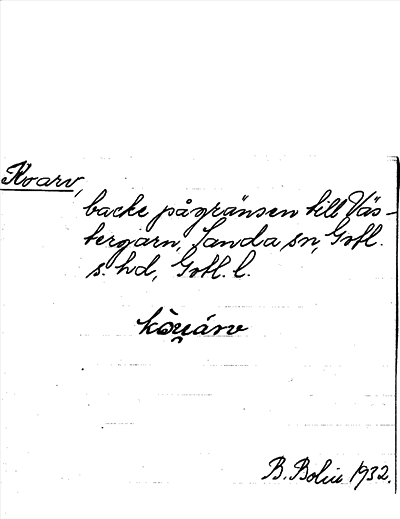 Roarv,
backe på gränsen till Väs-
tergarn, Sanda sn, Gotl.
s. hd, Gotl. l.
B. Bolin 1932.